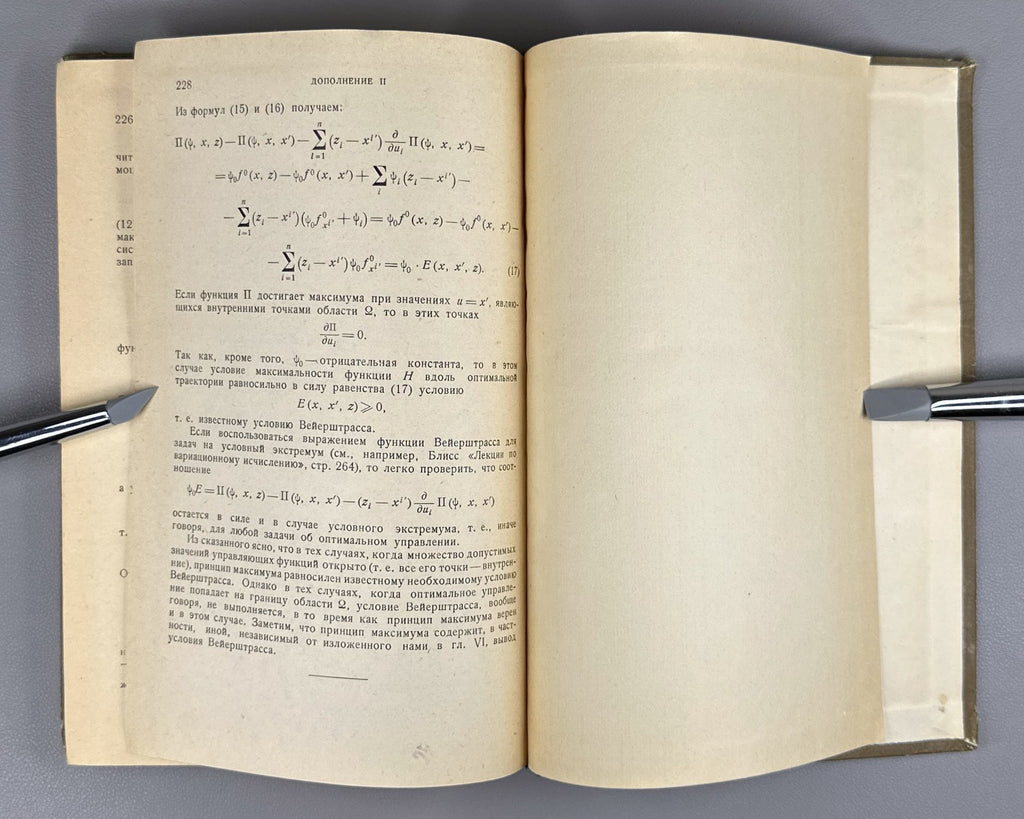 226
чит
(12
мак
сис
зап
а
т.
О
228
ДОПОЛНЕНИЕ II
Из формул (15) и (16) получаем:
Π(ψ, x, z) — Π(ψ, x, x′) — ∑ⁿᵢ₌₁ (zᵢ — xⁱ′) ∂/∂uᵢ Π(ψ, x, x′) =
= ψ₀f⁰(x, z) — ψ₀f⁰(x, x′) + ∑ᵢ ψᵢ(zᵢ — xⁱ′) —
— ∑ⁿᵢ₌₁ (zᵢ — xⁱ′)(ψ₀f⁰ₓⁱ′ + ψᵢ) = ψ₀f⁰(x, z) — ψ₀f⁰(x, x′) —
— ∑ⁿᵢ₌₁ (zᵢ — xⁱ′) ψ₀f⁰ₓⁱ′ = ψ₀ · E(x, x′, z). (17)
Если функция Π достигает максимума при значениях u = x′, являю-
щихся внутренними точками области Ω, то в этих точках
∂Π/∂uᵢ = 0.
Так как, кроме того, ψ₀ — отрицательная константа, то в этом
случае условие максимальности функции H вдоль оптимальной
траектории равносильно в силу равенства (17) условию
E(x, x′, z) ⩾ 0,
т. е. известному условию Вейерштрасса.
Если воспользоваться выражением функции Вейерштрасса для
задач на условный экстремум (см., например, Блисс «Лекции по
вариационному исчислению», стр. 264), то легко проверить, что соот-
ношение
ψ₀E = Π(ψ, x, z) — Π(ψ, x, x′) — (zᵢ — xⁱ′) ∂/∂uᵢ Π(ψ, x, x′)
остается в силе и в случае условного экстремума, т. е., иначе
говоря, для любой задачи об оптимальном управлении.
Из сказанного ясно, что в тех случаях, когда множество допустимых
значений управляющих функций открыто (т. е. все его точки — внутрен-
ние), принцип максимума равносилен известному необходимому условию
Вейерштрасса. Однако в тех случаях, когда оптимальное управле-
ние попадает на границу области Ω, условие Вейерштрасса, вообще
говоря, не выполняется, в то время как принцип максимума верен
и в этом случае. Заметим, что принцип максимума содержит, в част-
ности, иной, независимый от изложенного нами в гл. VI, вывод
условия Вейерштрасса.